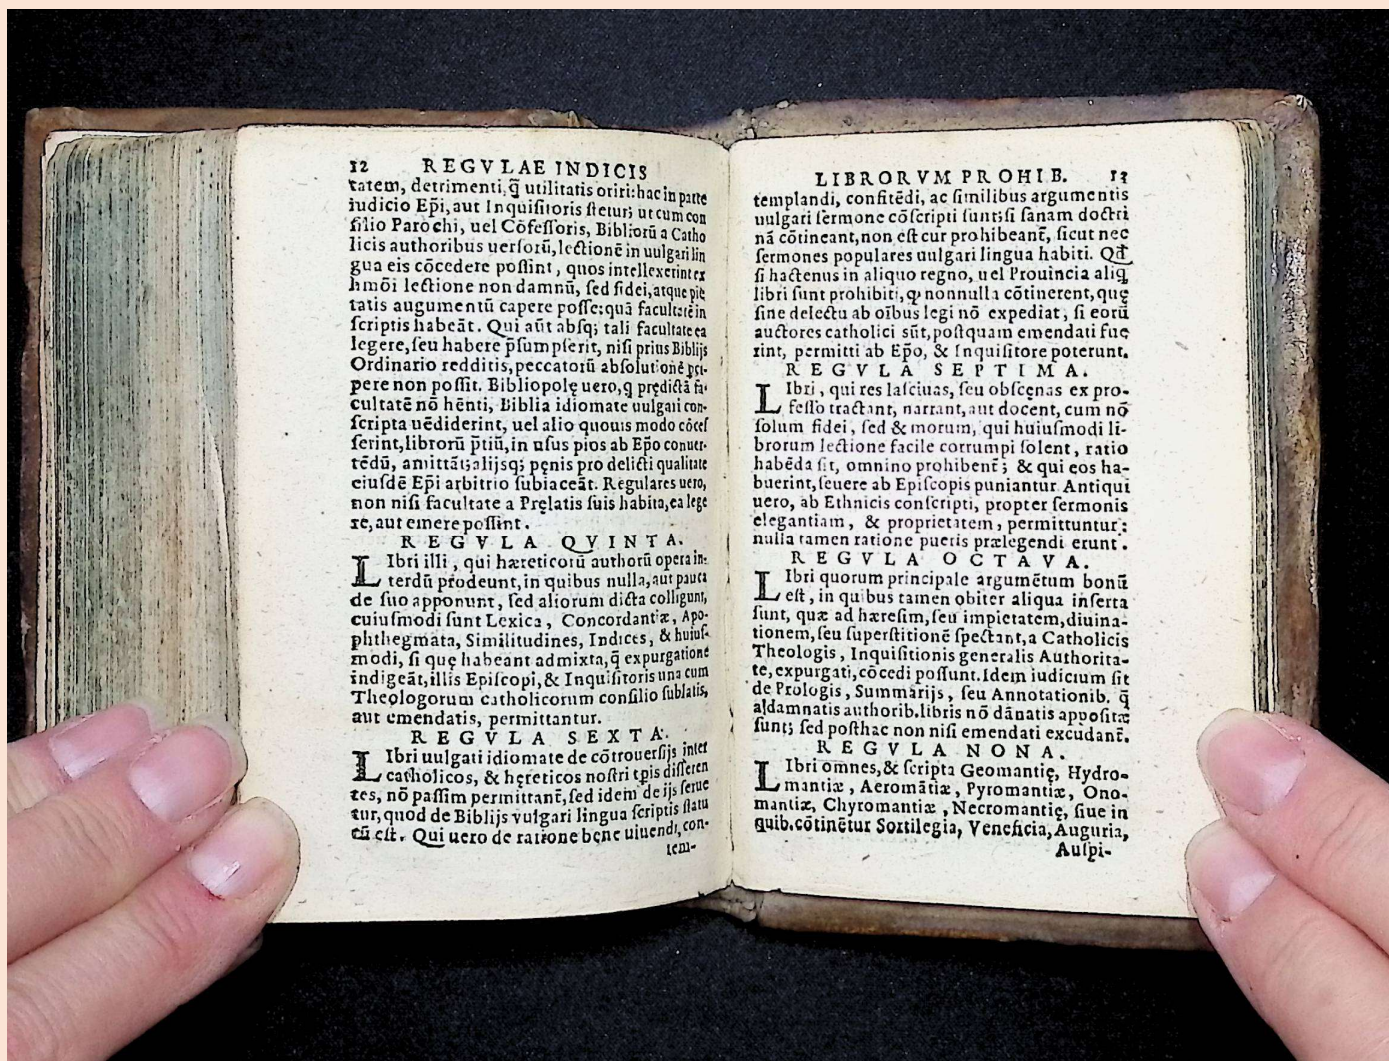 12 REGVLAE INDICIS
tatem, detrimenti, q̃ utilitatis oriri: hac in parte
iudicio Ep̃i, aut Inquiſitoris ſtetur; ut cum con
ſilio Parochi, uel Cõfeſſoris, Bibliorũ a Catho
licis authoribus uerſorũ, lectionẽ in uulgari lin
gua eis cõcedere poſſint, quos intellexerint ex
hmõi lectione non damnũ, ſed fidei, atque pie
tatis augumentũ capere poſſe: quã facultatẽ in
ſcriptis habeãt. Qui aũt abſq; tali facultate ea
legere, ſeu habere p̃ſumpſerit, niſi prius Biblijs
Ordinario redditis, peccatorũ abſolutionẽ per-
pere non poſſit. Bibliopolę uero, q prędictã fa-
cultatẽ nõ hẽnti, Biblia idiomate uulgari con-
ſcripta uẽdiderint, uel alio quouis modo cõceſ
ſerint, librorũ p̃tiũ, in uſus pios ab Ep̃o conuer-
tẽdũ, amittãt; alijsq; pęnis pro delicti qualitate
eiuſdẽ Ep̃i arbitrio ſubiaceãt. Regulares uero,
non niſi facultate a Pręlatis ſuis habita, ea lege
re, aut emere poſſint.
REGVLA QVINTA.
LIbri illi, qui hæreticorũ authorũ opera in-
terdũ prodeunt, in quibus nulla, aut pauca
de ſuo apponunt, ſed aliorum dicta colligunt,
cuiuſmodi ſunt Lexica, Concordantiæ, Apo-
phthegmata, Similitudines, Indices, & huiuſ-
modi, ſi quę habeant admixta, q̃ expurgatione
indigeãt, illis Epiſcopi, & Inquiſitoris una cum
Theologorum catholicorum conſilio ſublatis,
aut emendatis, permittantur.
REGVLA SEXTA.
LIbri uulgati idiomate de cõtrouerſijs inter
catholicos, & hęreticos noſtri tp̃is diſſeren
tes, nõ paſſim permittant̃, ſed idem de ijs ſerue
tur, quod de Biblijs vulgari lingua ſcriptis ſtatu
tũ eſt. Qui uero de ratione bene uiuendi, con-
tem-
LIBRORVM PROHIB. 13
templandi, confitẽdi, ac ſimilibus argumentis
uulgari ſermone cõſcripti ſunt; ſi ſanam doctri
nã cõtineant, non eſt cur prohibeant̃, ſicut nec
ſermones populares uulgari lingua habiti. Qđ
ſi hactenus in aliquo regno, uel Prouincia aliq̃
libri ſunt prohibiti, ꝙ nonnulla cõtinerent, quę
ſine delectu ab oĩbus legi nõ expediat, ſi eorũ
auctores catholici sũt, poſtquam emendati fue
rint, permitti ab Ep̃o, & Inquiſitore poterunt.
REGVLA SEPTIMA.
LIbri, qui res laſciuas, ſeu obſcęnas ex pro-
feſſo tractant, narrant, aut docent, cum nõ
ſolum fidei, ſed & morum, qui huiuſmodi li-
brorum lectione facile corrumpi ſolent, ratio
habẽda ſit, omnino prohibent̃; & qui eos ha-
buerint, ſeuere ab Epiſcopis puniantur Antiqui
uero, ab Ethnicis conſcripti, propter ſermonis
elegantiam, & proprietatem, permittuntur:
nulla tamen ratione pueris prælegendi erunt.
REGVLA OCTAVA.
LIbri quorum principale argumẽtum bonũ
eſt, in quibus tamen obiter aliqua inſerta
ſunt, quæ ad hæreſim, ſeu impietatem, diuina-
tionem, ſeu ſuperſtitionẽ ſpectant, a Catholicis
Theologis, Inquiſitionis generalis Authorita-
te, expurgati, cõcedi poſſunt. Idem iudicium ſit
de Prologis, Summarijs, ſeu Annotationib. q̃
a damnatis authorib. libris nõ dãnatis appoſitæ
ſunt; ſed poſthac non niſi emendati excudant̃.
REGVLA NONA.
LIbri omnes, & ſcripta Geomantię, Hydro-
mantiæ, Aeromãtiæ, Pyromantiæ, Ono-
mantiæ, Chyromantiæ, Necromantię, ſiue in
quib. cõtinẽtur Sortilegia, Veneficia, Auguria,
Auſpi-